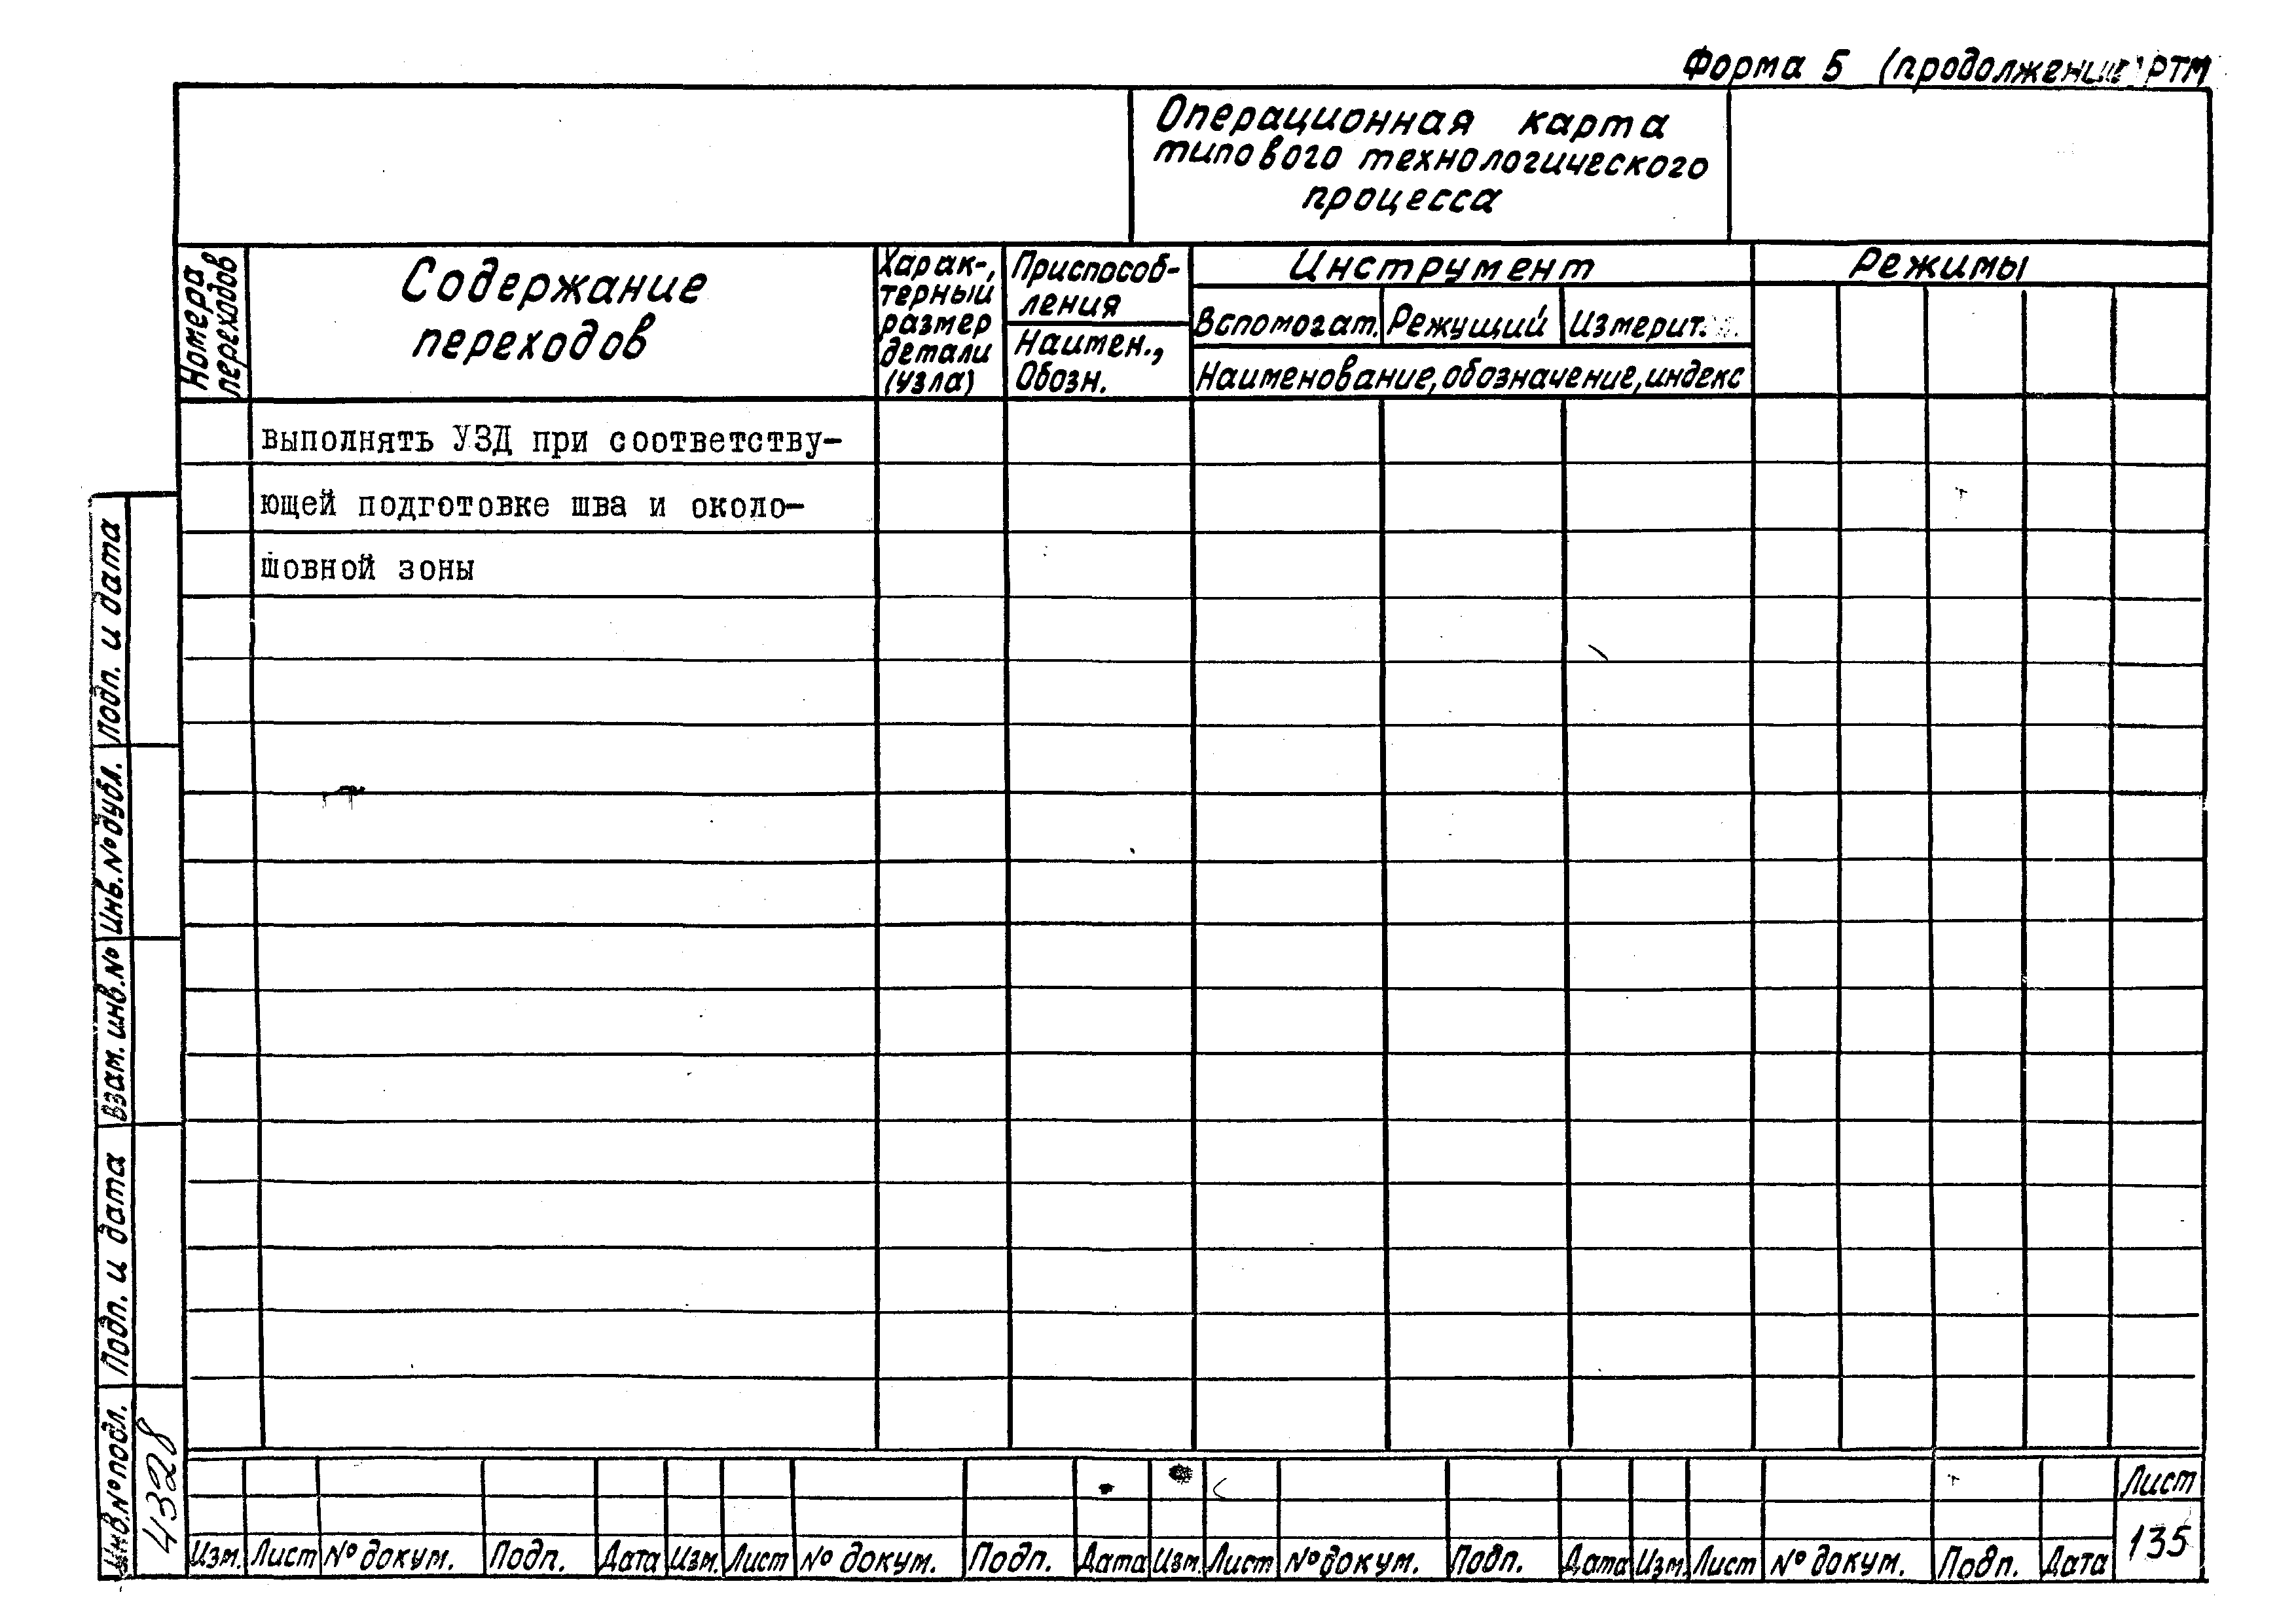 Форма 5 (продолжение) РТМ
Операционная карта
типового технологического
процесса
Номера
переходов
Содержание
переходов
Харак-,
терный
размер
детали
(узла)
Приспособ-
ления
Наимен.,
Обозн.
Инструмент
Вспомогат. Режущий Измерит.
Наименование, обозначение, индекс
Режимы
выполнять УЗД при соответству-
ющей подготовке шва и около-
шовной зоны
Подп. и дата
Инв. № дубл.
Взам. инв. №
Подп. и дата
Инв. № подл.
4328
Изм. Лист № докум. Подп. Дата Изм. Лист № докум. Подп. Дата Изм. Лист № докум. Подп. Дата Изм. Лист № докум. Подп. Дата
Лист
135